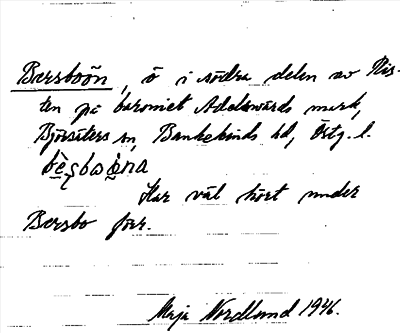 Bersboön, ö i södra delen av Ris-
ten på baroniet Adelswärds mark,
Björsäters sn, Bankekinds hd, Östg. l.
Har väl hört under
Bersbo förr.
Maja Nordlund 1946.